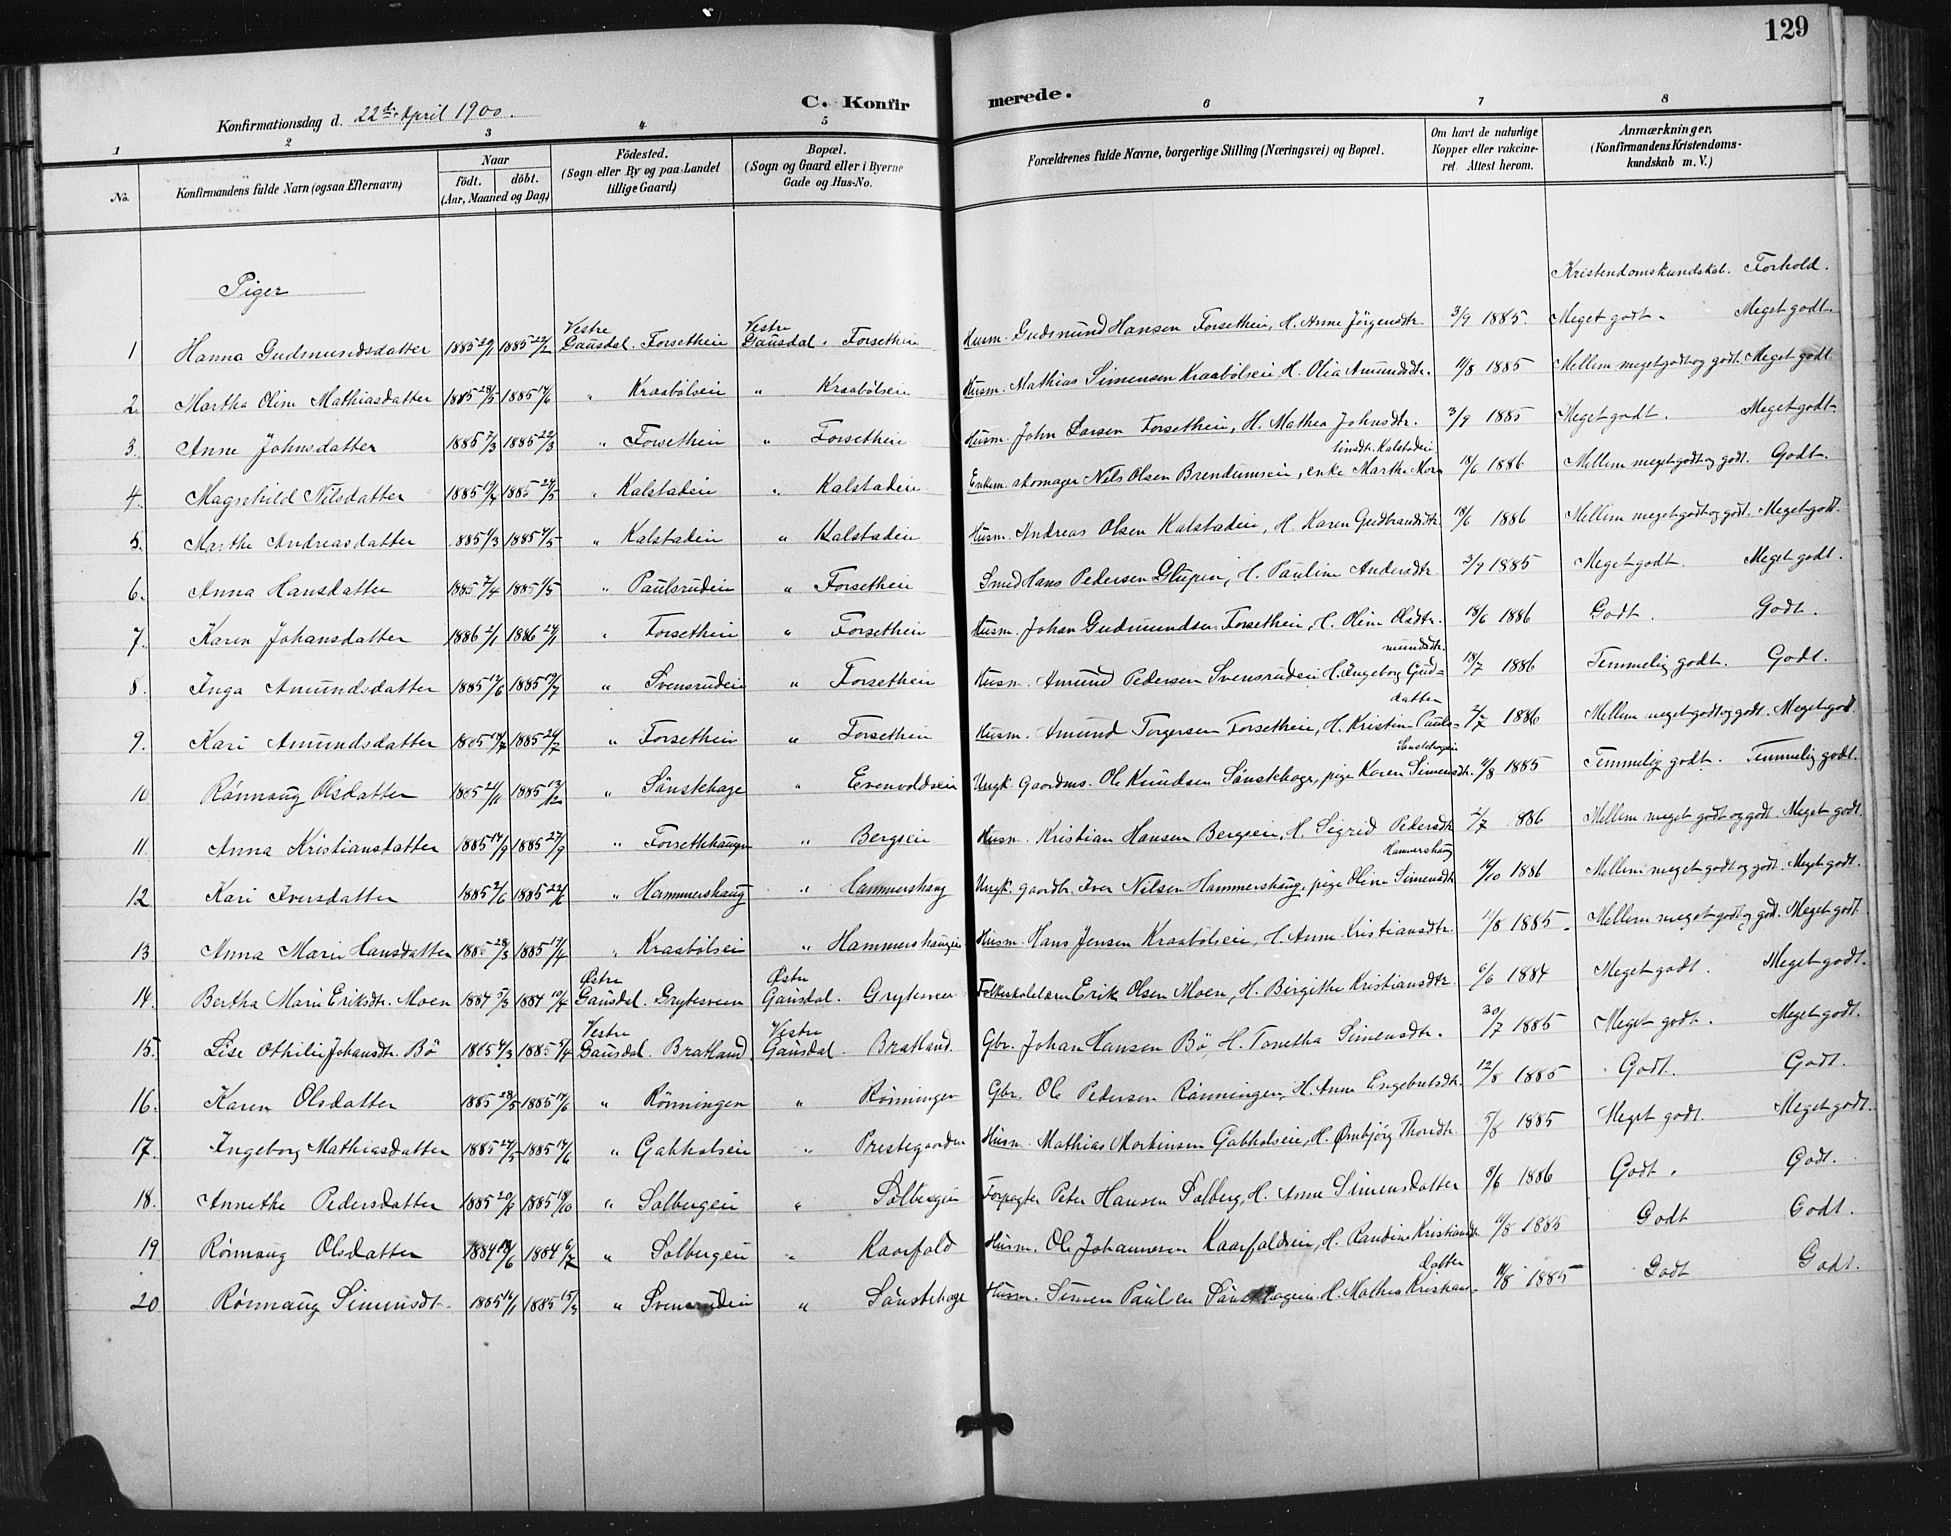 129
C. Konfirmerede.
Konfirmationsdag d. 22de April 1900.
1 2 3 4 5 6 7 8
No. Konfirmandens fulde Navn (ogsaa Efternavn) Naar født. døbt. (Aar, Maaned og Dag) Fødested. (Sogn eller By og paa Landet tillige Gaard) Bopæl. (Sogn og Gaard eller i Byerne Gade og Hus-No. Forældrenes fulde Navne, borgerlige Stilling (Næringsvei) og Bopæl. Om havt de naturlige Kopper eller vakcineret. Attest herom. Anmærkninger. (Konfirmandens Kristendomskundskab m. V.)
Piger Kristendomskundskab. Forhold.
1 Hanna Gudmundsdatter 1885 1885 22/2 Vestre Gausdal. Forsetheien Vestre Gausdal. Forsetheien Husm. Gudmund Hansen Forsetheien, H. Anne Jörgensdtr. 3/9 1885. Meget godt. Meget godt.
2. Martha Oline Mathiasdatter 1885 28/5 1885 14/6 " Kraabölseien " Kraabölseien Husm. Mathias Simensen Kraabölseien, H. Olia Amundsdtr. 11/8 1885 Mellem meget godt og godt. Meget godt
3. Anne Johnsdatter 1885 2/3 1885 22/3 " Forsetheien " Forsetheien Husm. John Larsen Forsetheien, H. Mathea Johnsdtr. 3/9 1885 Meget godt. Meget godt
4. Magnhild Nilsdatter 1885 1885 24/5 " Kalstadeien " Kalstadeien Enkem. skomager Nils Olsen Brendumseien, enke Marthe Mortinsdtr. Kalstadeien 18/6 1886 Mellem meget godt og godt. Godt.
5. Marthe Andreasdatter 885 1885 4/5 " Kalstadeien " Kalstadeien Husm. Andreas Olsen Kalstadeien, H. Karen Gudbrandsdtr. 18/6 1886 Mellem meget godt og godt. Meget godt.
6. Anna Hansdatter 1885 7/4 1885 " Paulsrudeien " Forsetheien Smed Hans Pedersen Slupen, H. Pauline Andersdtr. 3/9 1885 Meget godt. Meget godt.
7. Karen Johansdatter 1886 2/1 1886 24/1 " Forsetheien " Forsetheien Husm. Johan Gudmundsen Forsetheien, H. Oline Olsdtr. 18/6 1886 Godt. Godt.
8. Inga Amundsdatter 1885 17/6 1885 " Svensrudeien " Forsetheien Husm. Amund Pedersen Svensrudeien H. Ingeborg Gudmundsdtr. 18/7 1886 Temmelig godt. Godt.
9. Kari Amundsdatter 1885 1885 26/7 " Forsetheien " Forsetheien Husm. Amund Torgersen Forsetheien, H. Kristine Paulsdatter 2/7 1886 Mellem meget godt og godt. Meget godt.
10 Rönnaug Olsdatter 1885 21/11 1885 13/12 " Sönstehage " Evenvoldseien Ungk. Gaardms. Ole Knudsen Sönstehage, pige Karen Simensdtr. Sönstehageien 11/8 1885 Temmelig godt. Temmelig godt.
11. Anna Kristiansdatter 1885 14/9 1885 27/9 " Forsethhaugen " Bergseien Husm. Kristian Hansen Bergseien, H. Sigrid Pedersdtr. 2/7 886 Mellem meget godt og godt. Meget godt.
12 Kari Iversdatter 1885 2/6 1885 22/6 " Hammershaug " Hammershaug Ungk. gaardbr. Iver Nilsen Hammershaug, pige Oline Simensdtr. Hammershaug 14/10 1886 Mellem meget godt og godt. Meget godt.
13 Anna Marie Hansdatter 1885 28/3 1885 17/4 " Kraabölseien " Hammershaugeien Husm. Hans Jensen Kraabölseien, H. Anne Kristiansdtr. 11/8 1885. Mellem meget godt og godt. Meget godt.
14. Bertha Marie Eriksdtr. Moen 1884 5/3 1884 10/4 Østre Gausdal. Grytesveen Østre Gausdal. Grytesveen Folkeskolelærer Erik Olsen Moen, H. Birgithe Kristiansdtr. 6/6 1884 Meget godt. Meget godt.
15. Lise Othilie Johansdtr. Bö 1885 1885 Vestre Gausdal. Bratland Vestre Gausdal. Bratland. Gbr. Johan Hansen Bö, H. Tonetha Simensdtr. 30/7 1885 Meget godt. Meget godt.
16. Karen Olsdatter 1885 28/5 1885 17/6 " Rönningen " Rönningen Gbr. Ole Pedersen Rönningen, H. Anne Engebretsdtr. 12/8 1885 Godt. Godt.
17. Ingeborg Mathiasdatter 1885 27/5 1885 17/6 " Gabholseien " Prestegaarden Husm. Mathias Mortinsen Gabholseien, H. Ørnbjörg Thordtr. 5/8 1885 Meget godt. Meget godt.
18. Annethe Pedersdatter 1885 20/9 1885 18/10 " Solbergeien " Solbergeien Forpagter Peter Hansen Solberg, H. Anne Simensdatter 8/6 1886 Godt. Godt.
19 Rönnaug Olsdatter 1884 1884 6/7 " Solbergeien " Kaarfald Husm. Ole Johannesen Kaarfaldeien, H. Randine Kristiansdtr. 11/8 1885 Godt Godt.
20 Rönnaug Simensdt. 1885 14/1 1885 15/3 " Svensrudeien " Sönstehage Husm. Simen Paulsen Sönstehageien. H. Mathea Kristiansdatter 11/8 1885 Godt Godt.